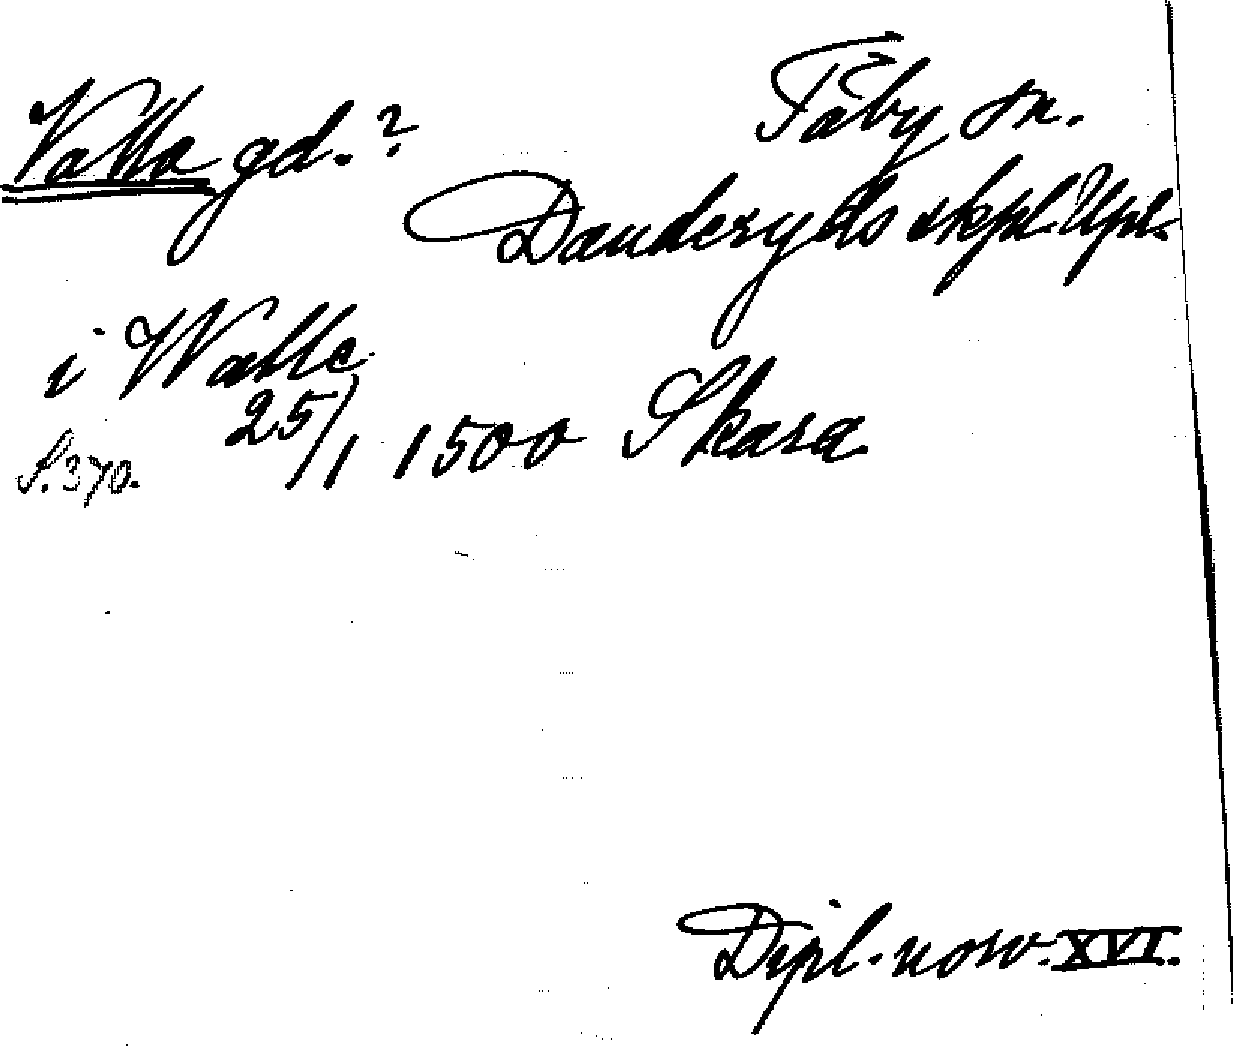 Valla gd.?
Täby sn.
Danderyds skpl. Upl.
i Walle
25/1 1500 Skara
S. 370.
Dipl. norv. XVI.